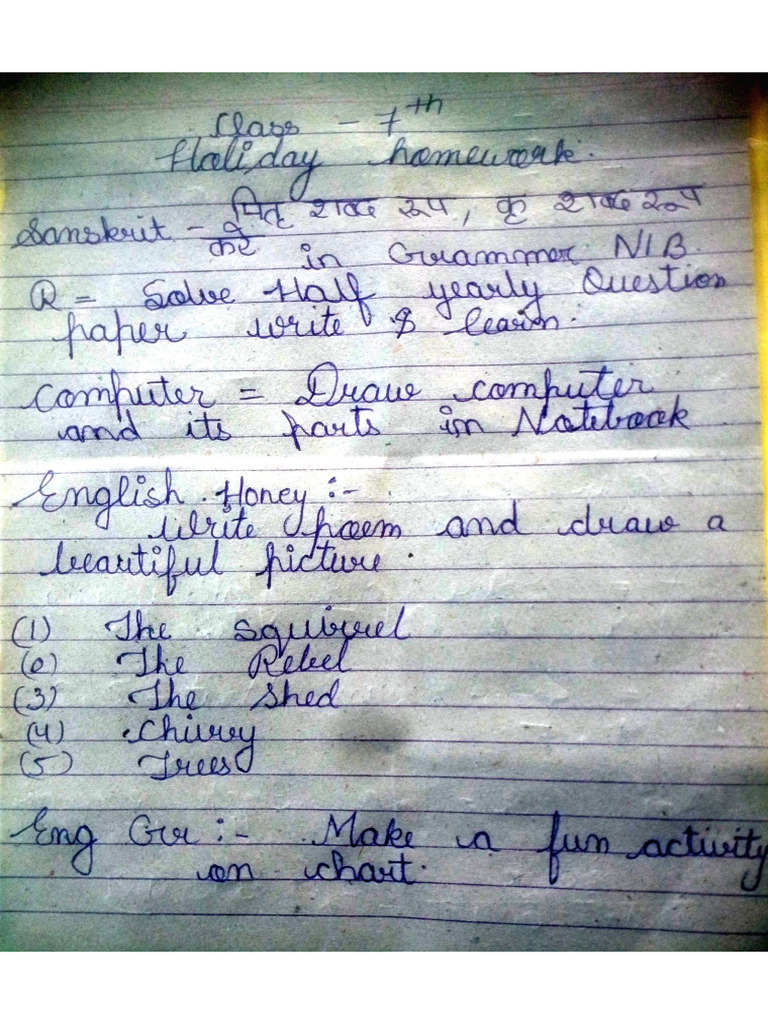 Class - 7th
Haliday homework.
Sanskrit - पितृ शब्द रूप, कृ शब्द रूप
करे in Grammer N/B.
Q = Solve Half yearly Question
paper write & learn.
Computer = Draw computer
and its parts in Notebook
English Honey :-
Write poem and draw a
beautiful picture.
(1) The squirrel
(2) The Rebel
(3) The shed
(4) Chivvy
(5) Trees
Eng Gr :- Make a fun activity
on chart.